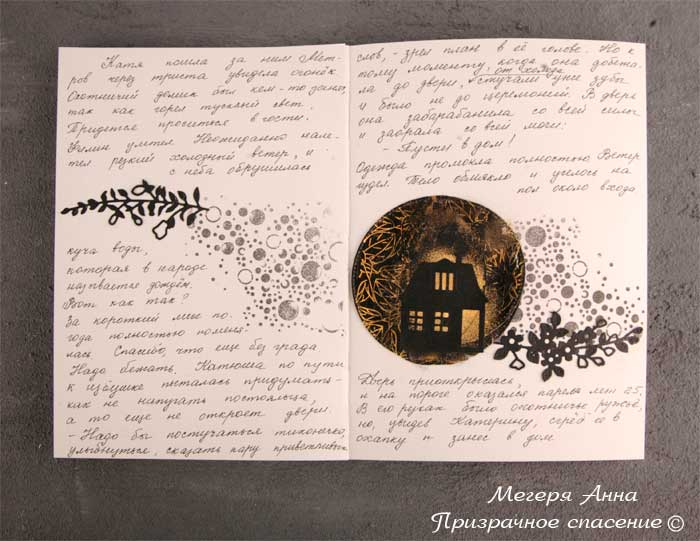 Катя пошла за ним. Мет-
ров через триста увидела огонёк.
Охотничий домик был кем-то занят,
так как горел тусклый свет.
Придётся проситься в гости.
Филин улетел. Неожиданно нале-
тел резкий холодный ветер, и
с неба обрушилась
куча воды,
которая в народе
называется дождём.
Вот как так?
За короткий миг по-
года полностью поменя-
лась. Спасибо, что ещё без града.
Надо бежать. Катюша по пути
к избушке пыталась придумать -
как не напугать постояльца,
а то ещё не откроет двери.
- Надо бы постучаться тихонечко,
улыбнуться, сказать пару приветливых
слов, - зрел план в её голове. Но к
тому моменту, когда она добежа-
ла до двери, от холода стучали уже зубы
и было не до церемоний. В дверь
она забарабанила со всей силы
и заорала со всей мочи:
- Пусти в дом!
Одежда промокла полностью. Ветер
гудел. Тело обмякло и уселось на
пол около входа
Дверь приоткрылась,
и на пороге оказался парень лет 25.
В его руках было охотничье ружьё,
но, увидев Катерину, сгрёб её в
охапку и занёс в дом
Мегеря Анна
Призрачное спасение ©